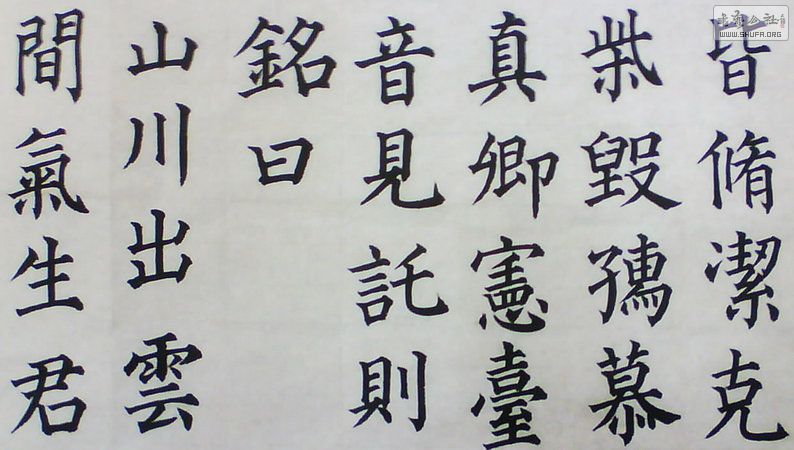 皆脩潔克
柴毀孺慕
真卿憲臺
音見託則
銘曰
山川出雲
間氣生君
書藝公社
WWW.SHUFA.ORG